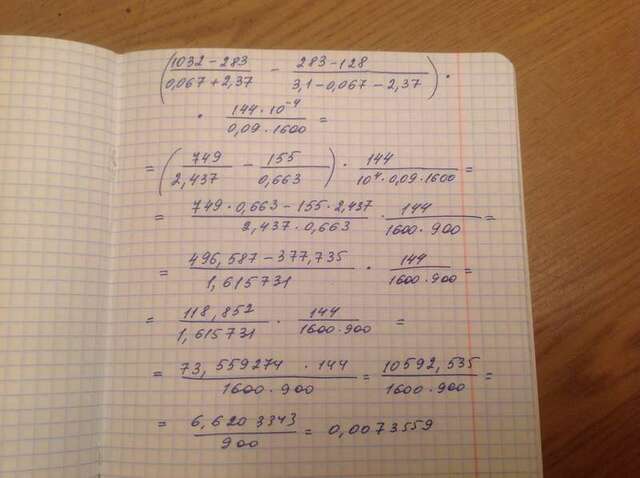 (1032-283/0,067+2,37 - 283-128/3,1-0,067-2,37) ·
· 144·10⁻⁴/0,09·1600 =
= (749/2,437 - 155/0,663) · 144/10⁴·0,09·1600 =
= 749·0,663-155·2,437/2,437·0,663 · 144/1600·900 =
= 496,587-377,735/1,615731 · 144/1600·900 =
= 118,852/1,615731 · 144/1600·900 =
= 73,559274·144/1600·900 = 10592,535/1600·900 =
= 6,6203343/900 = 0,0073559